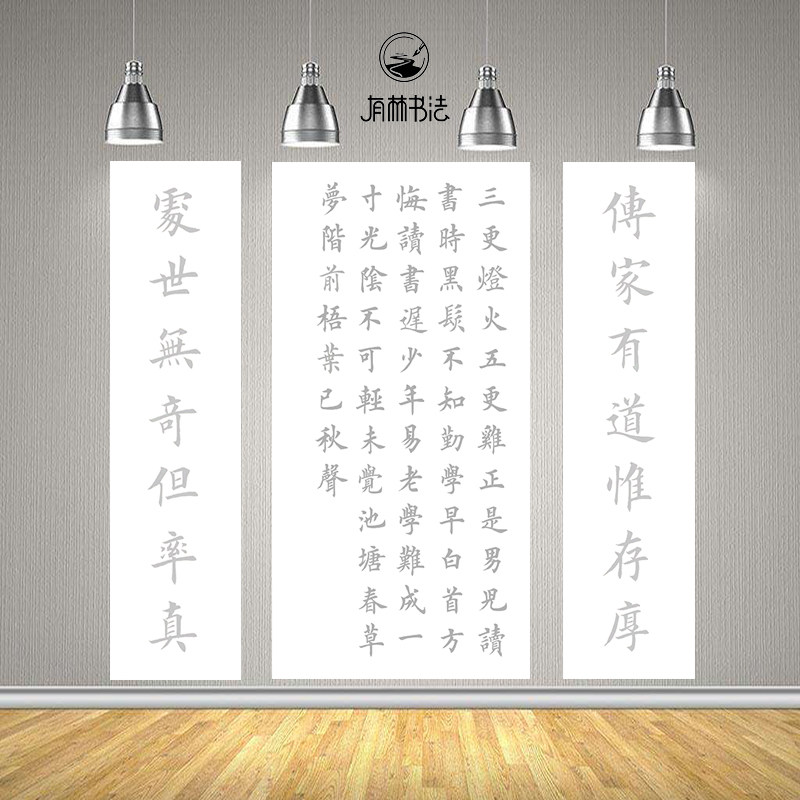 有林书法
傳家有道惟存厚
三更燈火五更雞正是男兒讀
書時黑髮不知勤學早白首方
悔讀書遲少年易老學難成一
寸光陰不可輕未覺池塘春草
夢階前梧葉已秋聲
處世無奇但率真